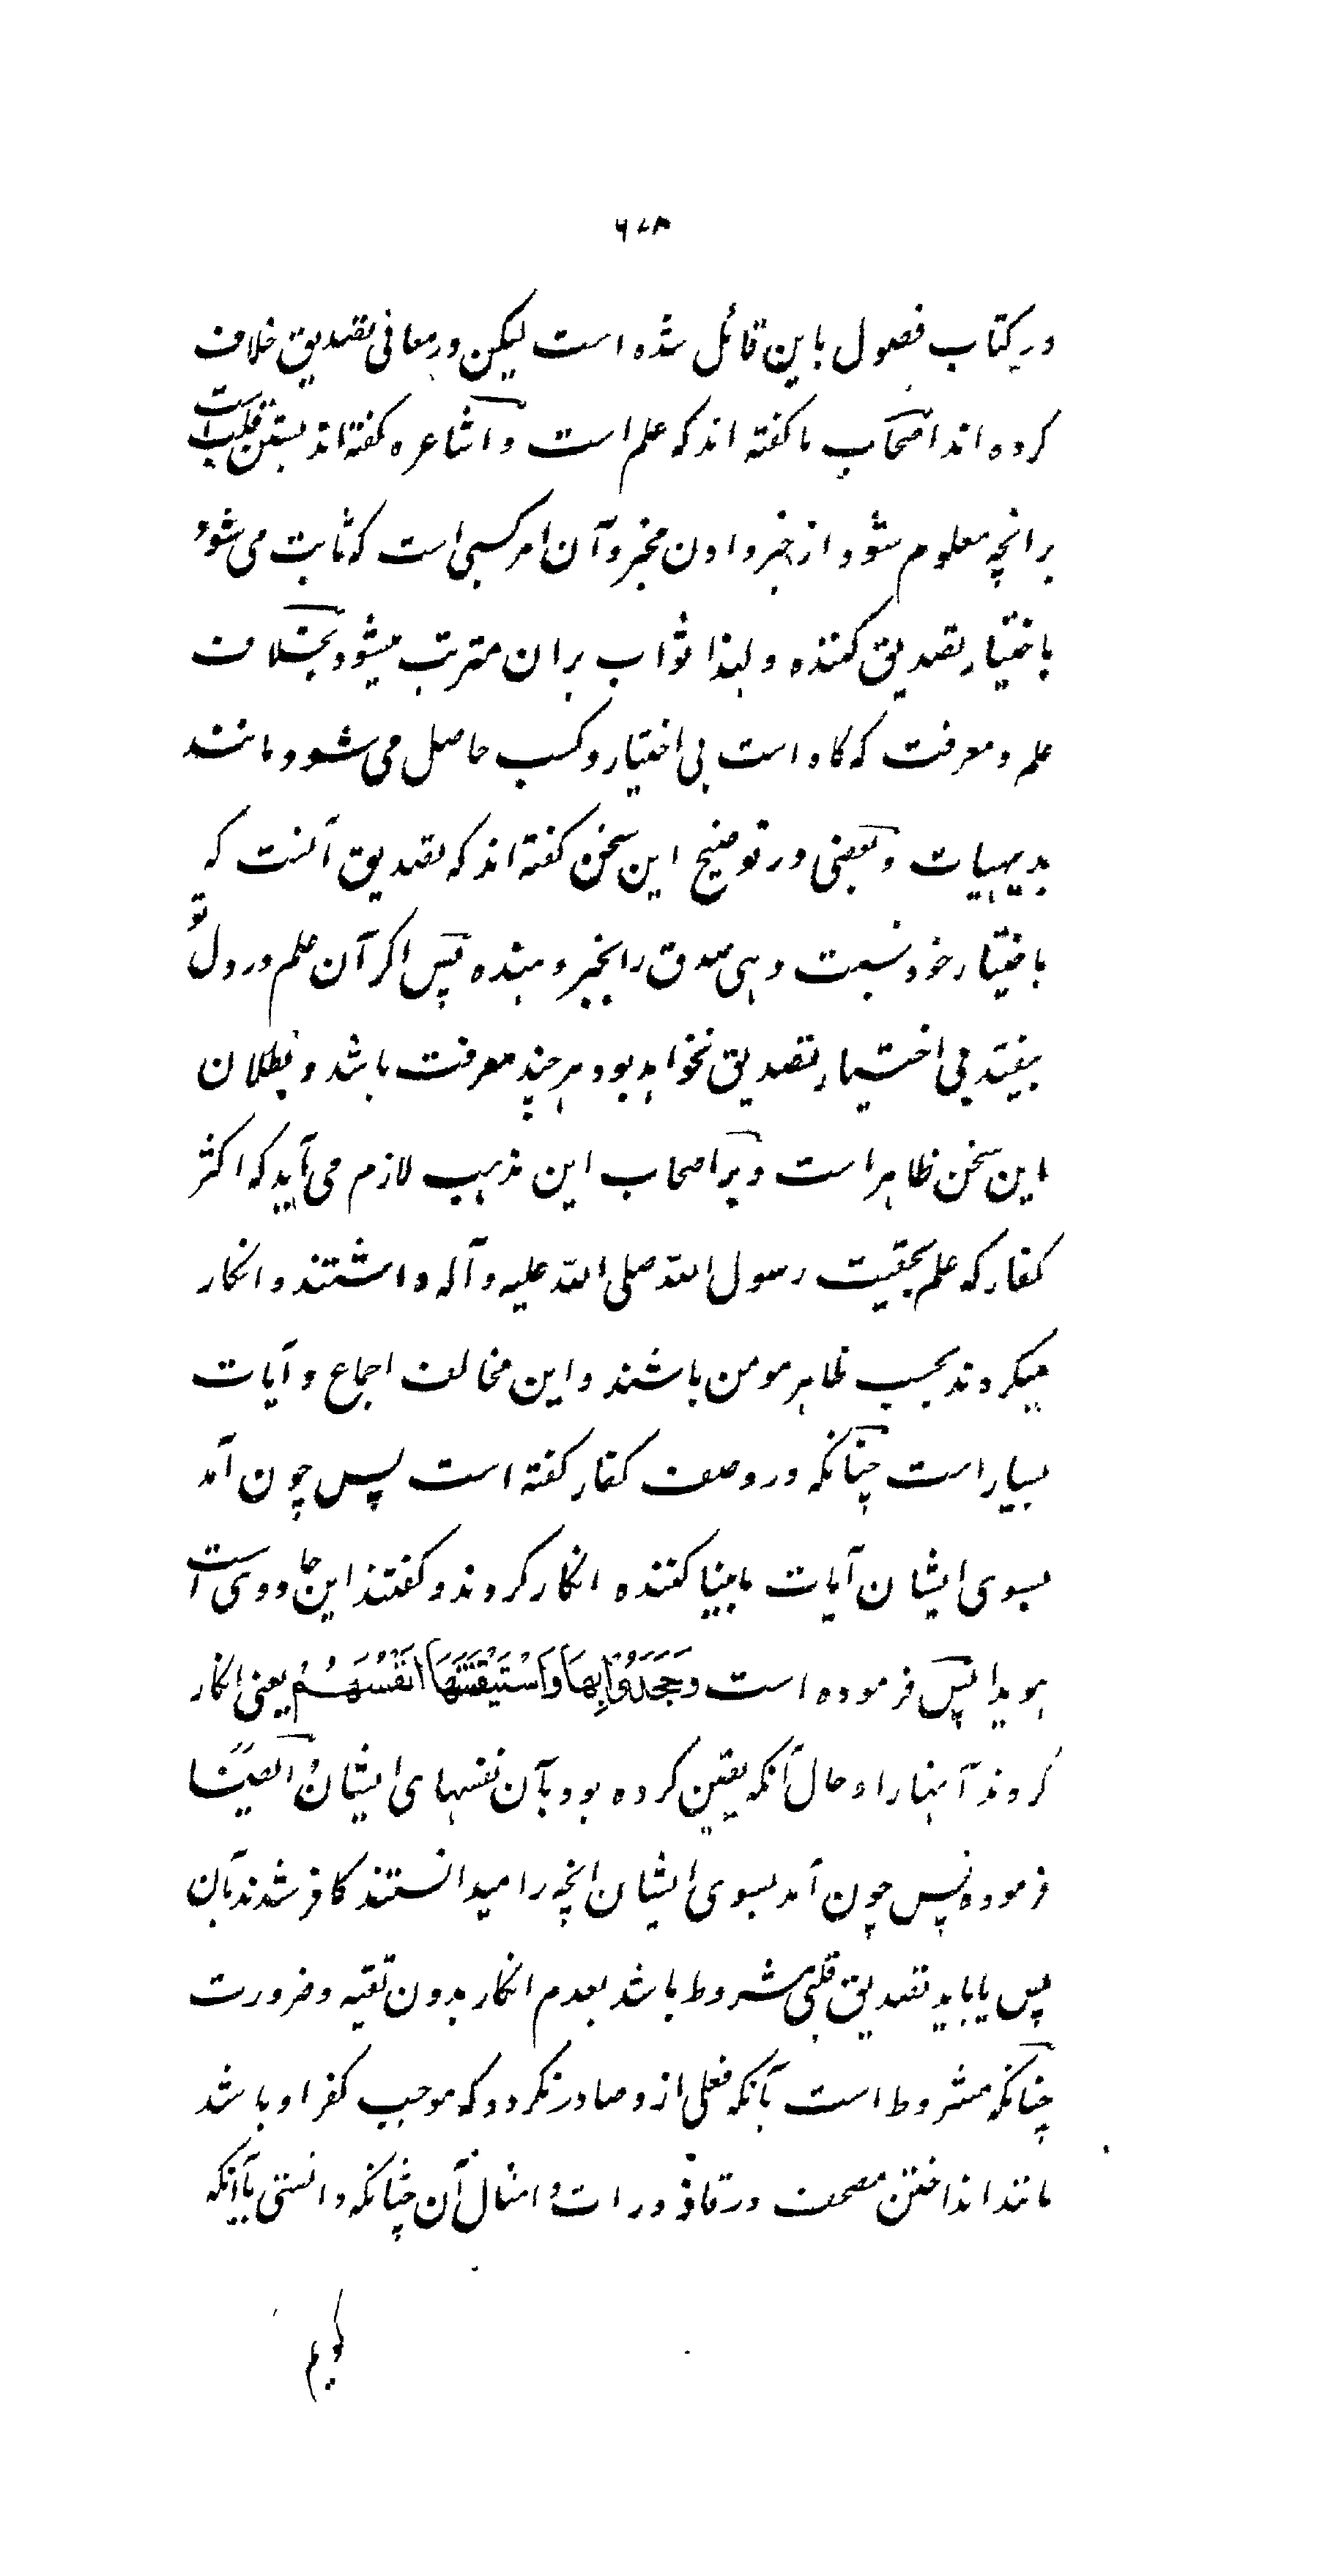 ۶۷۸
در کتاب فصول باین قائل شده است لیکن در معانی تصدیق خلاف
کرده اند اصحاب ما کفته اند که علم است و اشاعره کفته اند بستن قلب است
برانچه معلوم شود از خبر دادن مخبر و آن امر کسبی است که ثابت می شود
باختیار تصدیق کننده و لهذا ثواب بران مترتب میشود بخلاف
علم و معرفت که گاه است بی اختیار و کسب حاصل می شود مانند
بدیهیات و بعضی در توضیح این سخن کفته اند که تصدیق آنست که
باختیار خود نسبت دهی صدق را بخبر دهنده پس اکر آن علم در دل تو
بیفتد بی اختیار تصدیق نخواهد بود هر چند معرفت باشد و بطلان
این سخن ظاهر است و بر اصحاب این مذهب لازم می آید که اکثر
کفار که علم بحقیت رسول الله صلی الله علیه و آله داشتند و انکار
میکردند بحسب ظاهر مومن باشند و این مخالف اجماع و آیات
بسیار است چنانکه در وصف کفار کفته است پس چون آمد
بسوی ایشان آیات ما بینا کننده انکار کردند و کفتند این جادوی است
هویدا پس فرموده است وَجَحَدُوْا بِهَا وَاسْتَيْقَنَتْهَا اَنْفُسُهُمْ یعنی انکار
کردند آنها را و حال آنکه یقین کرده بود بآن نفسهای ایشان و ایضًا
فرموده پس چون آمد بسوی ایشان انچه را میدانستند کافر شدند بآن
پس یا باید تصدیق قلبی مشروط باشد بعدم انکار بدون تقیه و ضرورت
چنانکه مشروط است بآنکه فعلی ازو صادر نکردد که موجب کفر او باشد
مانند انداختن مصحف در قاذورات و امثال آن چنانکه دانستی یا آنکه
کویم